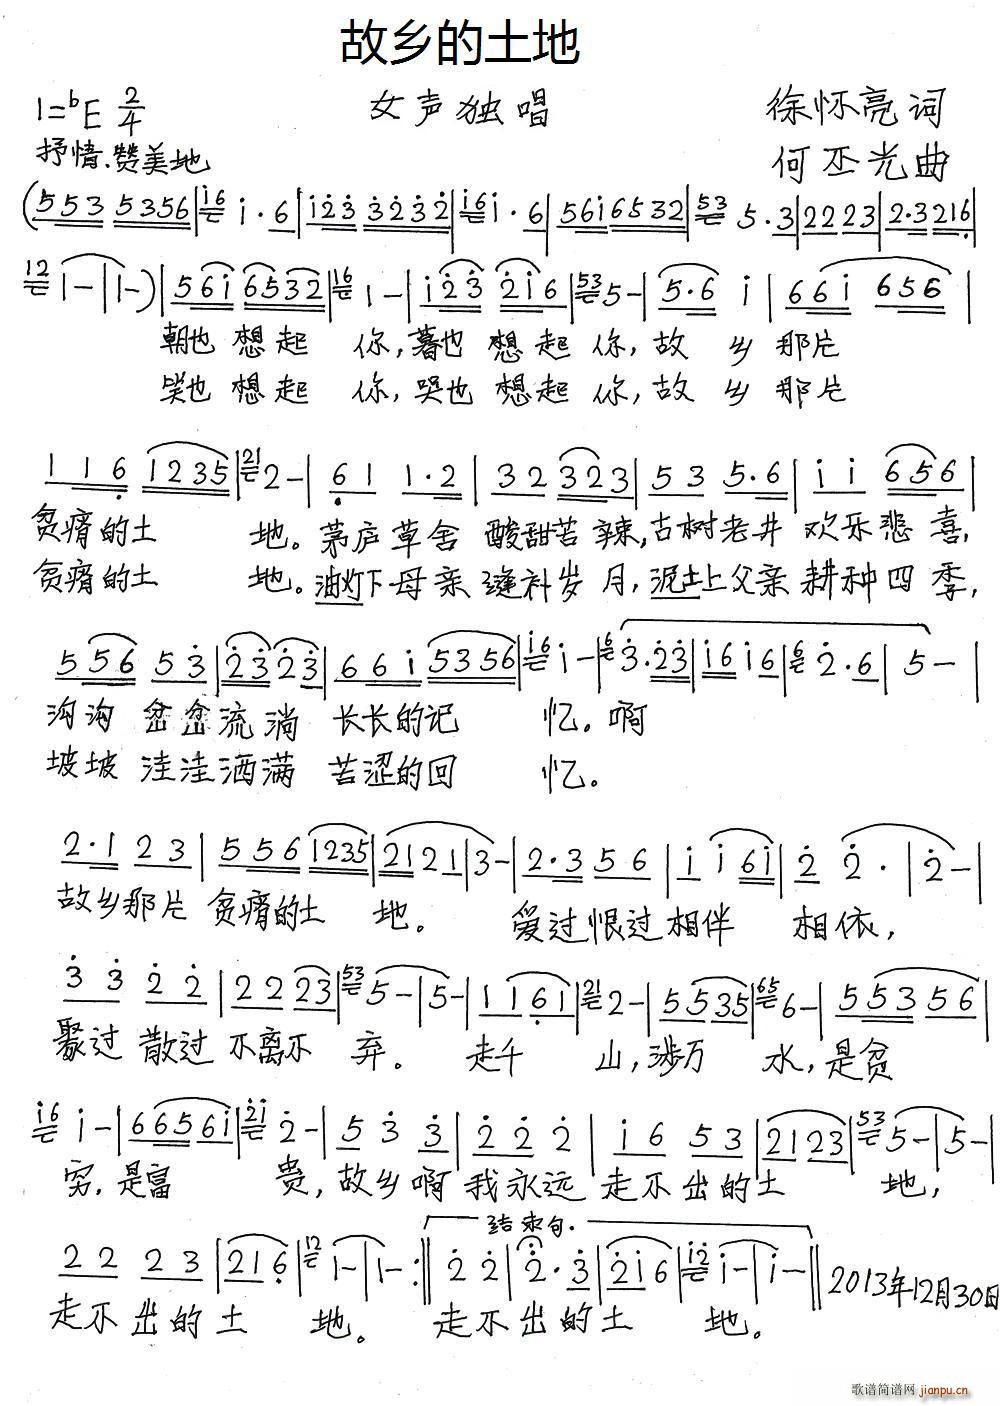 故乡的土地
1=bE 2/4 女声独唱 徐怀亮词
抒情.赞美地 何丕光曲
(5 5 3 5 3 5 6 | i 6 i · 6 | i 2 3 3 2 3 2 | i 6 i · 6 | 5 6 i 6 5 3 2 | 5 3 5 · 3 | 2 2 2 3 | 2 · 3 2 1 6 |
1 2 1 - | 1 - ) | 5 6 i 6 5 3 2 | 1 6 1 - | i 2 3 2 i 6 | 5 3 5 - | 5 · 6 i | 6 6 i 6 5 6 |
朝也想起 你,暮也想起你,故 乡那片
哭也想起 你,哭也想起你,故 乡那片
1 1 6 1 2 3 5 | 2 1 2 - | 6 1 1 · 2 | 3 2 3 2 3 | 5 3 5 · 6 | i i 6 5 6 |
贫瘠的土 地。茅庐草舍酸甜苦辣,古树老井欢乐悲喜,
贫瘠的土 地。油灯下母亲缝补岁月,泥土上父亲耕种四季,
5 5 6 5 3 | 2 3 2 3 | 6 6 i 5 3 5 6 | i 6 i - | 6 3 · 2 3 | i 6 i 6 | 6 2 · 6 | 5 - |
沟沟岔岔流淌长长的记 忆。啊
坡坡洼洼洒满苦涩的回 忆。
2 · 1 2 3 | 5 5 6 1 2 3 5 | 2 1 2 1 | 3 - | 2 · 3 5 6 | i i 6 i | 2 2 · | 2 - |
故乡那片贫瘠的土 地。 爱过恨过相伴 相依,
3 3 2 2 | 2 2 2 3 | 5 3 5 - | 5 - | 1 1 6 1 | 2 1 2 - | 5 5 3 5 | 6 5 6 - | 5 5 3 5 6 |
聚过散过不离不 弃。 走千 山,涉万 水,是贫
i 6 i - | 6 6 5 6 i | 2 i 2 - | 5 3 3 | 2 2 2 | i 6 5 3 | 2 1 2 3 | 5 3 5 - | 5 - |
穷,是富 贵,故乡啊我永远走不出的土 地,
结束句.
2 2 2 3 | 2 1 6 | 1 2 1 - | 1 - :‖ 2 2 | 2 · 3 | 2 i 6 | i 2 i - | i - ‖ 2013年12月30日
走不出的土 地。 走不出的土 地。
歌谱简谱网 jianpu.cn